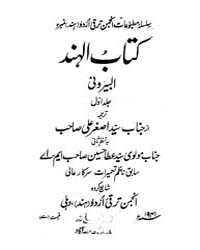 سلسلۂ مطبوعات انجمن ترقی اردو (ہند) نمبر
کتاب الہند
البیرونی
جلد اول
ترجمہ
از جناب سید اصغر علی صاحب
بہ نظر ثانی
جناب مولوی سید عطا حسین صاحب ایم۔اے
سابق ناظم تعمیرات سرکار عالی
شائع کردہ
انجمن ترقی اردو (ہند)، دہلی
۱۹۴۱ء